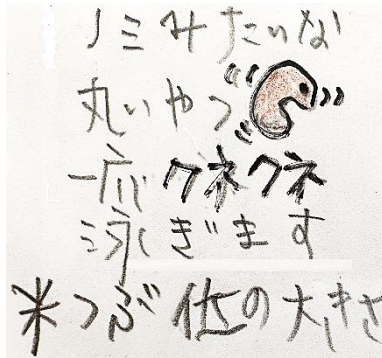 ノミみたいな
丸いやつ
一応クネクネ
泳ぎます
米つぶ位の大きさ